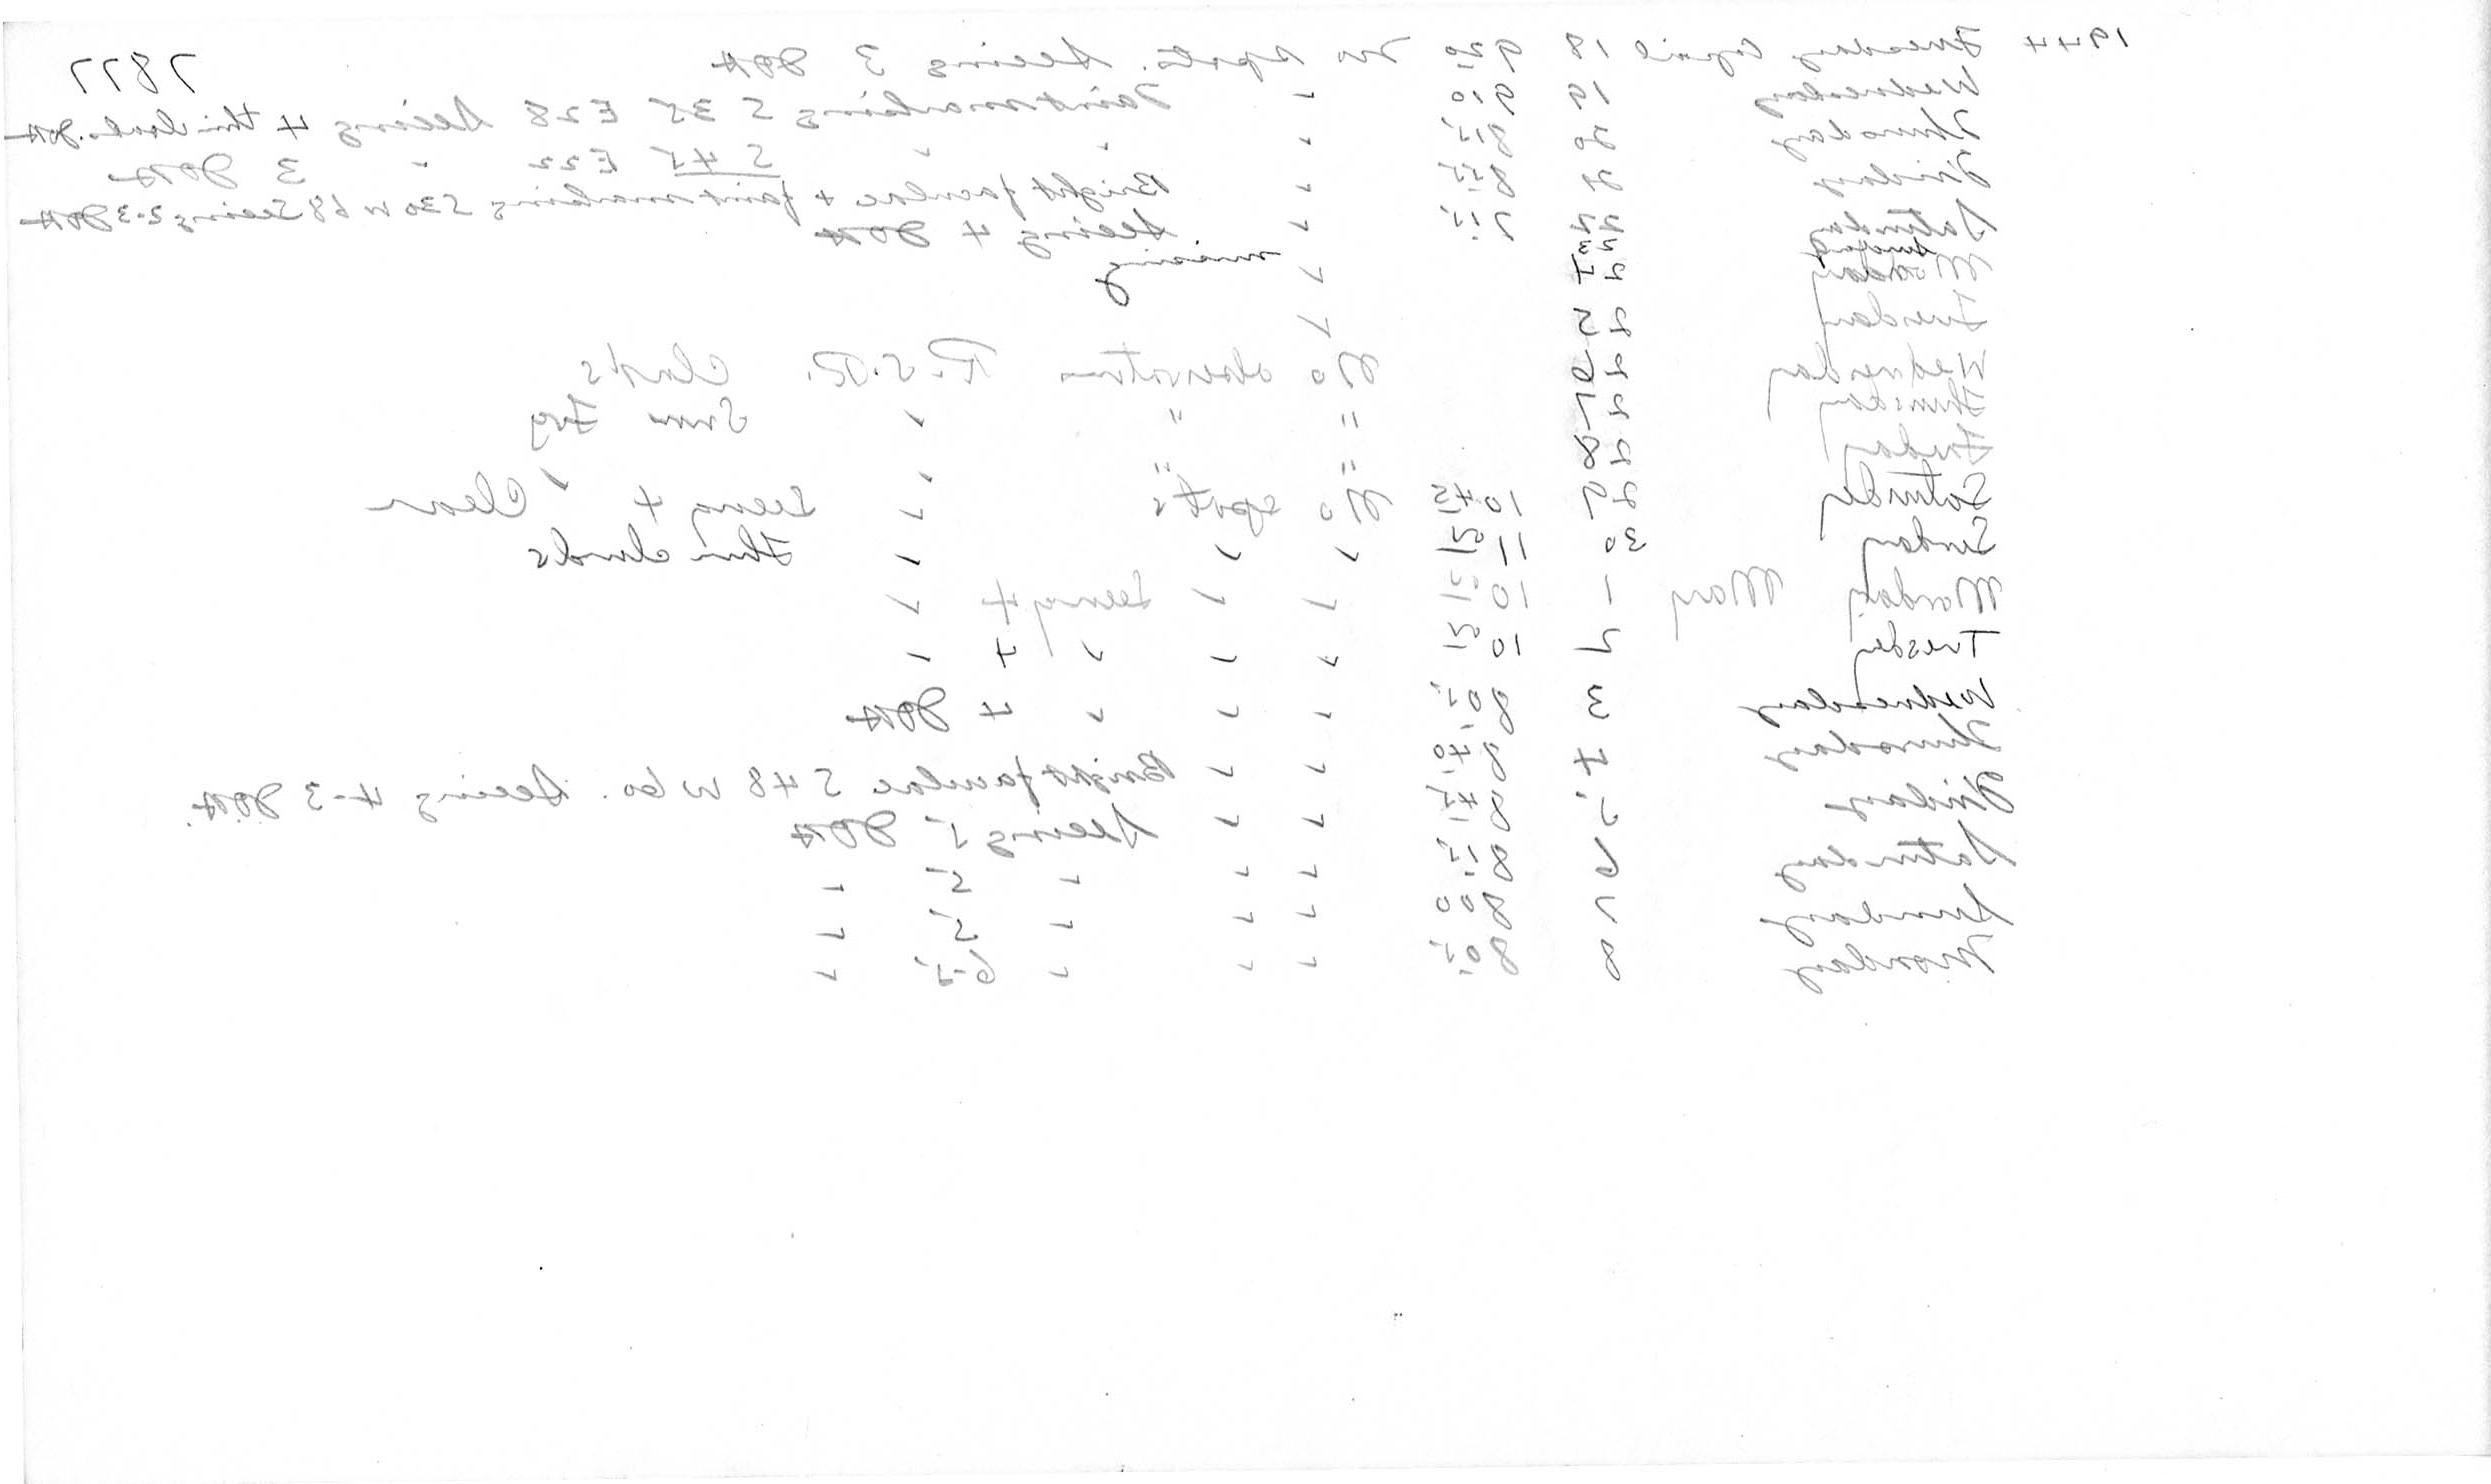 1944 Tuesday April 18 9 20 No spots. Seeing 3 JOH 7877
Wednesday 19 9 10 " Faint marking S 35 E 28 Seeing 4 thin clouds. JOH
Thursday 20 8 15 " " " S 45 E 22 " 3 JOH
Friday 21 8 55 " Bright faculae + faint marking S 30 W 68 Seeing 2-3 JOH
Saturday 22 7 55 " Seeing 4 JOH
Sunday 23
Monday 24 " missing
Tuesday 25 "
Wednesday 26 No observation Clouds
Thursday 27 " " " Snow Fog
Friday 28 " " " "
Saturday 29 10 45 No spots " Seeing 4 Clear
Sunday 30 11 15 " " " Thin clouds
Monday May 1 10 15 " " Seeing 4 "
Tuesday 2 10 15 " " " 4 "
Wednesday 3 8 05 " " " 4 JOH
Thursday 4 8 40 " " Bright faculae S 48 W 60. Seeing 4-3 JOH.
Friday 5 8 45 " " Seeing 5 JOH
Saturday 6 8 15 " " " 5 "
Sunday 7 8 00 " " " 5 "
Monday 8 8 05 " " " 6-5 "